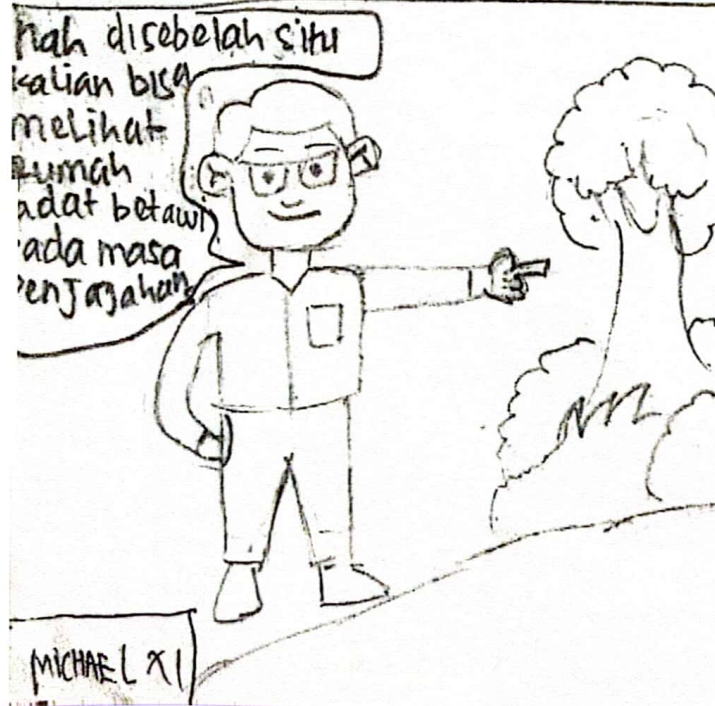 nah disebelah situ
kalian bisa
melihat
rumah
adat betawi
pada masa
penjajahan
MICHAEL XI